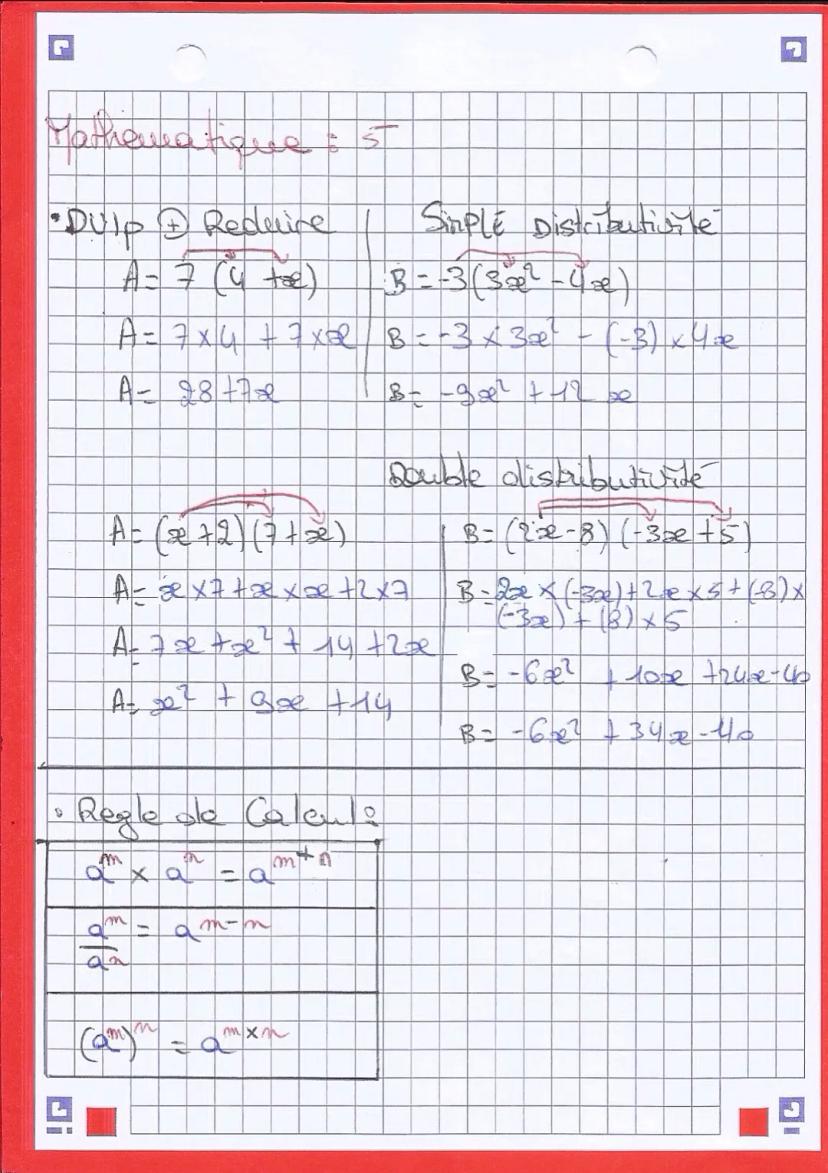 Mathematique : 5
• DVlp ⊕ Reduire
A = 7 (4 + x)
A = 7 × 4 + 7 × x
A = 28 + 7x
SimPLE Distributivité
B = -3(3x² - 4x)
B = -3 × 3x² - (-3) × 4x
B = -9x² + 12 x
Double distributivité
A = (x + 2) (7 + x)
A = x × 7 + x × x + 2 × 7
A = 7x + x² + 14 + 2x
A = x² + 9x + 14
B = (2x - 8) (-3x + 5)
B = 2x × (-3x) + 2x × 5 + (-8) ×
(-3x) + (8) × 5
B = -6x² + 10x + 24x - 40
B = -6x² + 34x - 40
• Regle de Calcul :
aᵐ × aⁿ = aᵐ⁺ⁿ
aᵐ/aⁿ = aᵐ⁻ⁿ
(aᵐ)ⁿ = aᵐˣⁿ